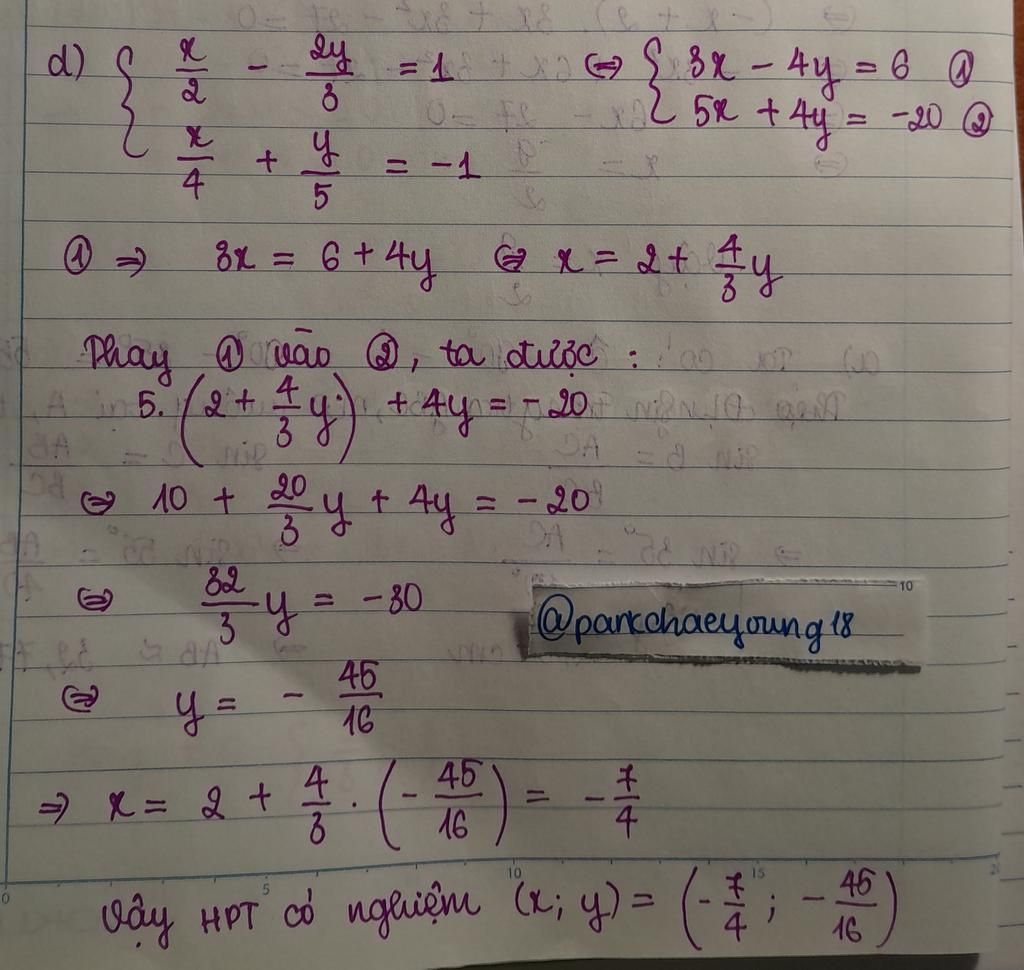 d) { x/2 - 2y/3 = 1 ⇔ { 3x - 4y = 6 ①
x/4 + y/5 = -1 5x + 4y = -20 ②
① ⇒ 3x = 6 + 4y ⇔ x = 2 + 4/3 y
Thay ① vào ②, ta được :
5. (2 + 4/3 y) + 4y = -20
⇔ 10 + 20/3 y + 4y = -20
⇔ 32/3 y = -30
@parkchaeyoung18
⇔ y = - 45/16
⇒ x = 2 + 4/3 . (- 45/16) = - 7/4
Vậy HPT có nghiệm (x; y) = (- 7/4 ; - 45/16)